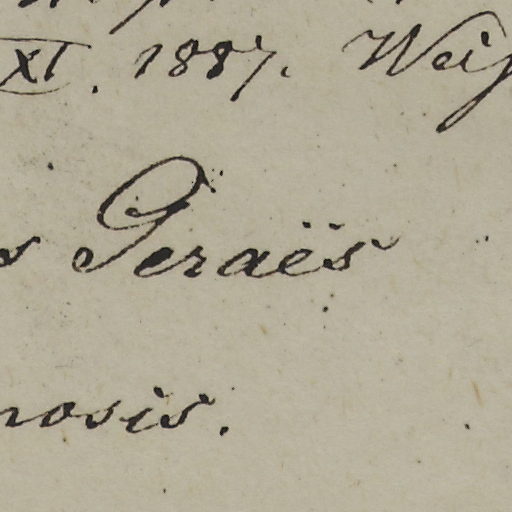 XI. 1887.
s Geraës
nosis.